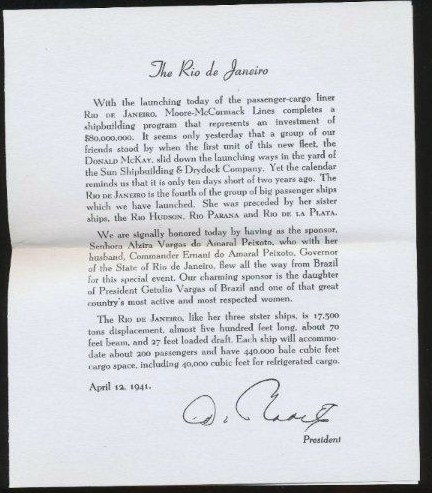 The Rio de Janeiro
With the launching today of the passenger-cargo liner
RIO DE JANEIRO, Moore-McCormack Lines completes a
shipbuilding program that represents an investment of
$80,000,000. It seems only yesterday that a group of our
friends stood by when the first unit of this new fleet, the
DONALD MCKAY, slid down the launching ways in the yard of
the Sun Shipbuilding & Drydock Company. Yet the calendar
reminds us that it is only ten days short of two years ago. The
RIO DE JANEIRO is the fourth of the group of big passenger ships
which we have launched. She was preceded by her sister
ships, the RIO HUDSON, RIO PARANA and RIO DE LA PLATA.
We are signally honored today by having as the sponsor,
Senhora Alzira Vargas do Amaral Peixoto, who with her
husband, Commander Ernani do Amaral Peixoto, Governor
of the State of Rio de Janeiro, flew all the way from Brazil
for this special event. Our charming sponsor is the daughter
of President Getulio Vargas of Brazil and one of that great
country's most active and most respected women.
The RIO DE JANEIRO, like her three sister ships, is 17,500
tons displacement, almost five hundred feet long, about 70
feet beam, and 27 feet loaded draft. Each ship will accommo-
date about 200 passengers and have 440,000 bale cubic feet
cargo space, including 40,000 cubic feet for refrigerated cargo.
April 12, 1941.
President